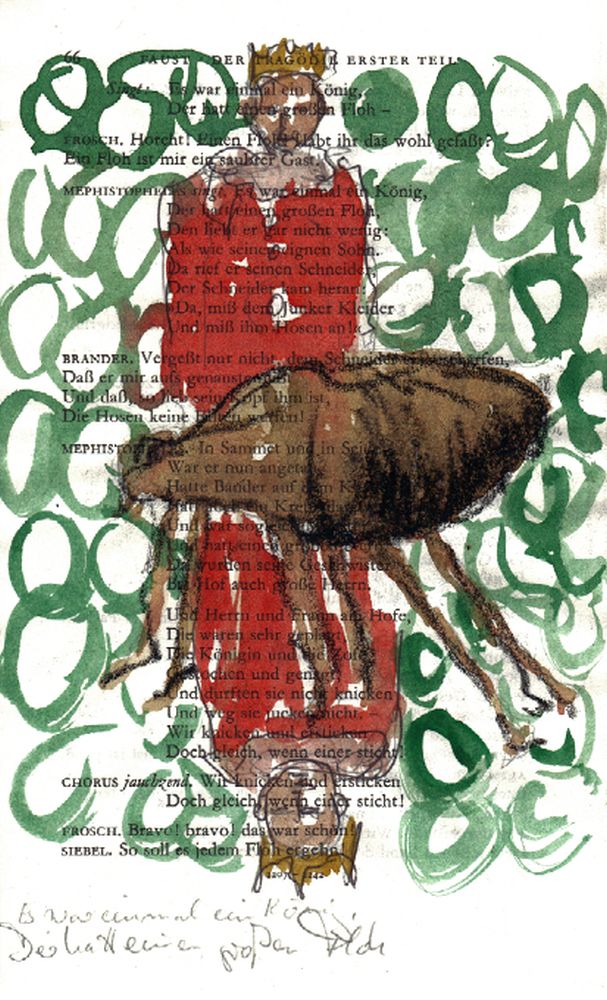 66 FAUST · DER TRAGÖDIE ERSTER TEIL
Singt: Es war einmal ein König,
Der hatt einen großen Floh –
FROSCH. Horcht! Einen Floh! Habt ihr das wohl gefaßt?
Ein Floh ist mir ein saubrer Gast.
MEPHISTOPHELES singt. Es war einmal ein König,
Der hatt einen großen Floh,
Den liebt er gar nicht wenig:
Als wie seinen eignen Sohn.
Da rief er seinen Schneider,
Der Schneider kam heran:
»Da, miß dem Junker Kleider
Und miß ihm Hosen an!«
BRANDER. Vergeßt nur nicht, dem Schneider einzuschärfen,
Daß er mir aufs genauste mißt
Und daß, so lieb sein Kopf ihm ist,
Die Hosen keine Falten werfen!
In Sammet und in
War er nun angetan,
Hatte Bänder auf dem
Und war sogleich
Und hatt einen großen
Da wurden seine Geschwister
Bei Hof auch große Herrn.
Und Herrn und Fraun am Hofe,
Die waren sehr geplagt,
Die Königin und die Zofe
Gestochen und genagt,
Und durften sie nicht knicken
Und weg sie jucken nicht.
Wir knicken und ersticken
Doch gleich, wenn einer sticht.
CHORUS jauchzend. Wir knicken und ersticken
Doch gleich, wenn einer sticht!
FROSCH. Bravo! bravo! das war schön!
SIEBEL. So soll es jedem Floh ergehn!
Es war einmal ein König
Der hatt einen großen Floh